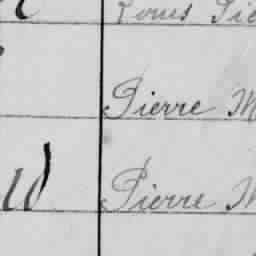 Louis Pie
Pierre M
d Pierre M